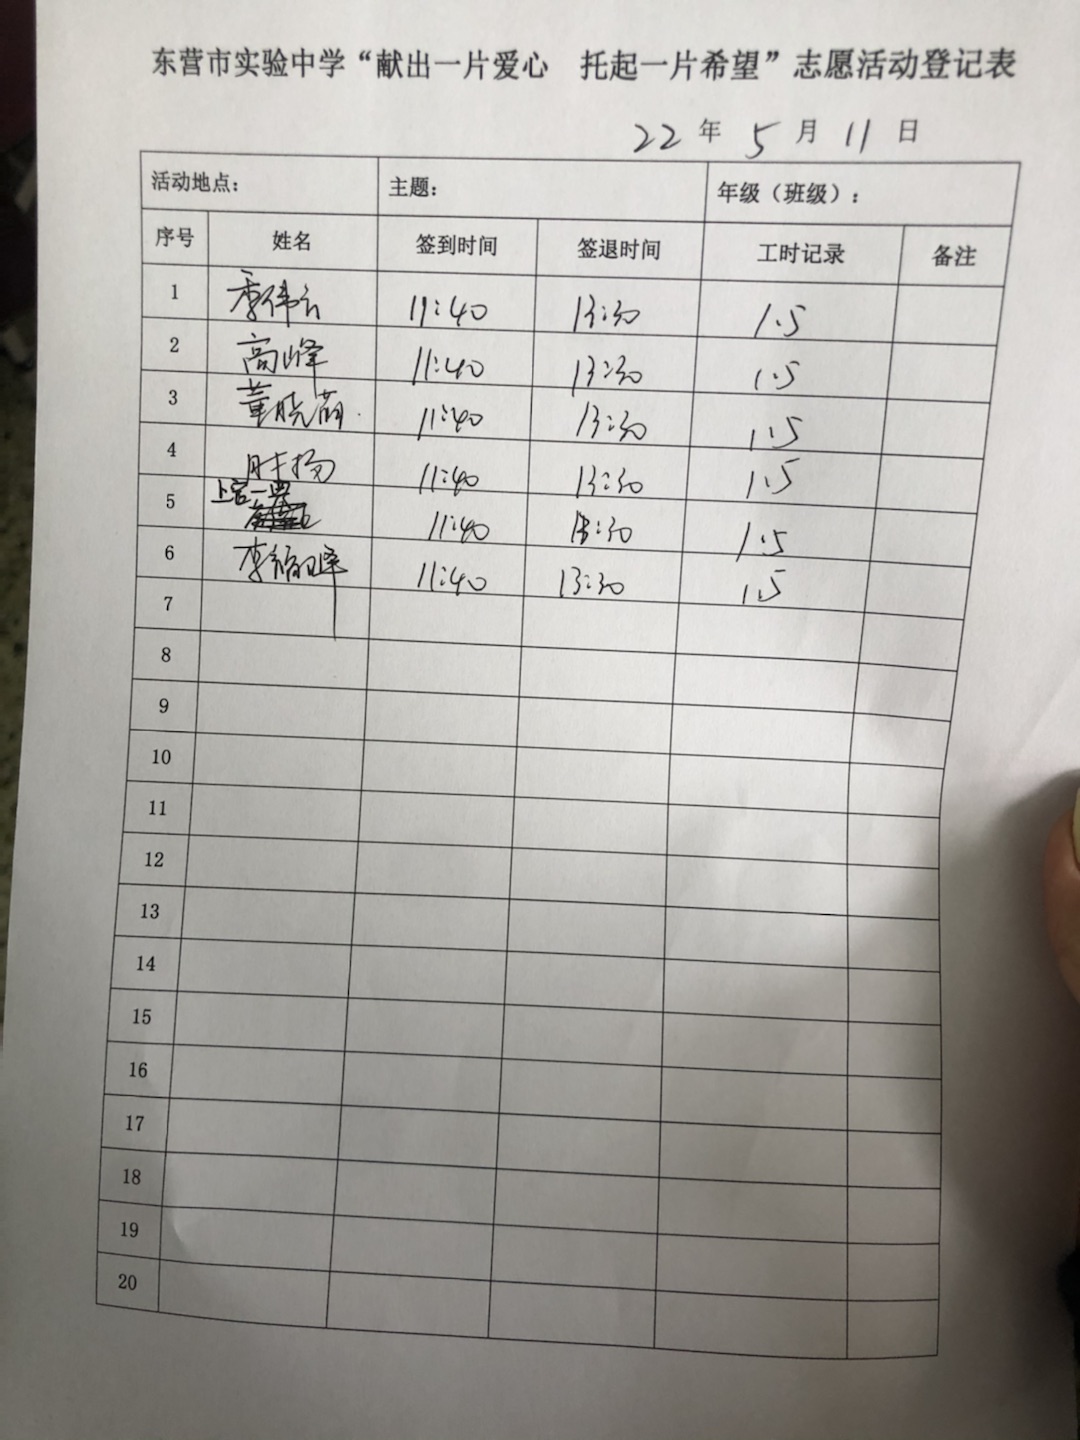 东营市实验中学“献出一片爱心 托起一片希望”志愿活动登记表
22 年 5 月 11 日
活动地点： 主题： 年级（班级）：
序号 姓名 签到时间 签退时间 工时记录 备注
1 季伟云 11:40 13:30 1.5
2 高峰 11:40 13:30 1.5
3 董晓萌 11:40 13:30 1.5
4 11:40 13:30 1.5
5 上官一典 11:40 13:30 1.5
6 11:40 13:30 1.5
7
8
9
10
11
12
13
14
15
16
17
18
19
20